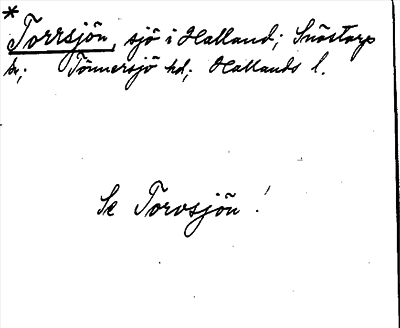 * Torrsjön, sjö i Halland; Snöstorp
sn; Tönnersjö hd; Hallands l.
Se Torvsjön!